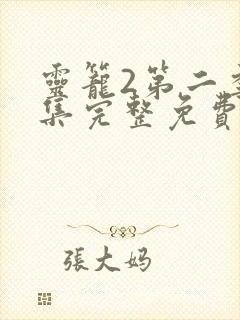 靈籠2第二季
集完整免費
張大妈